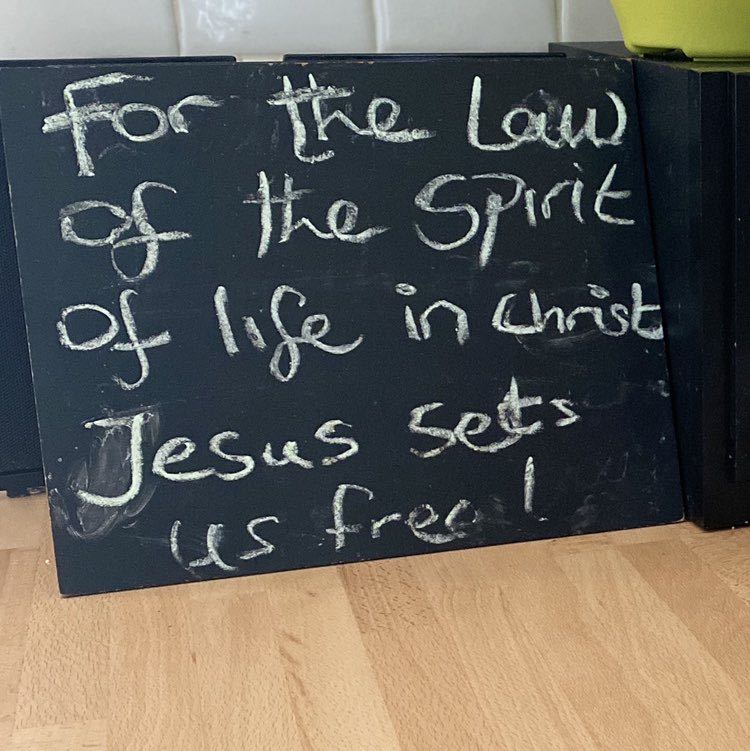 For the Law
of the Spirit
of life in Christ
Jesus sets
us free!